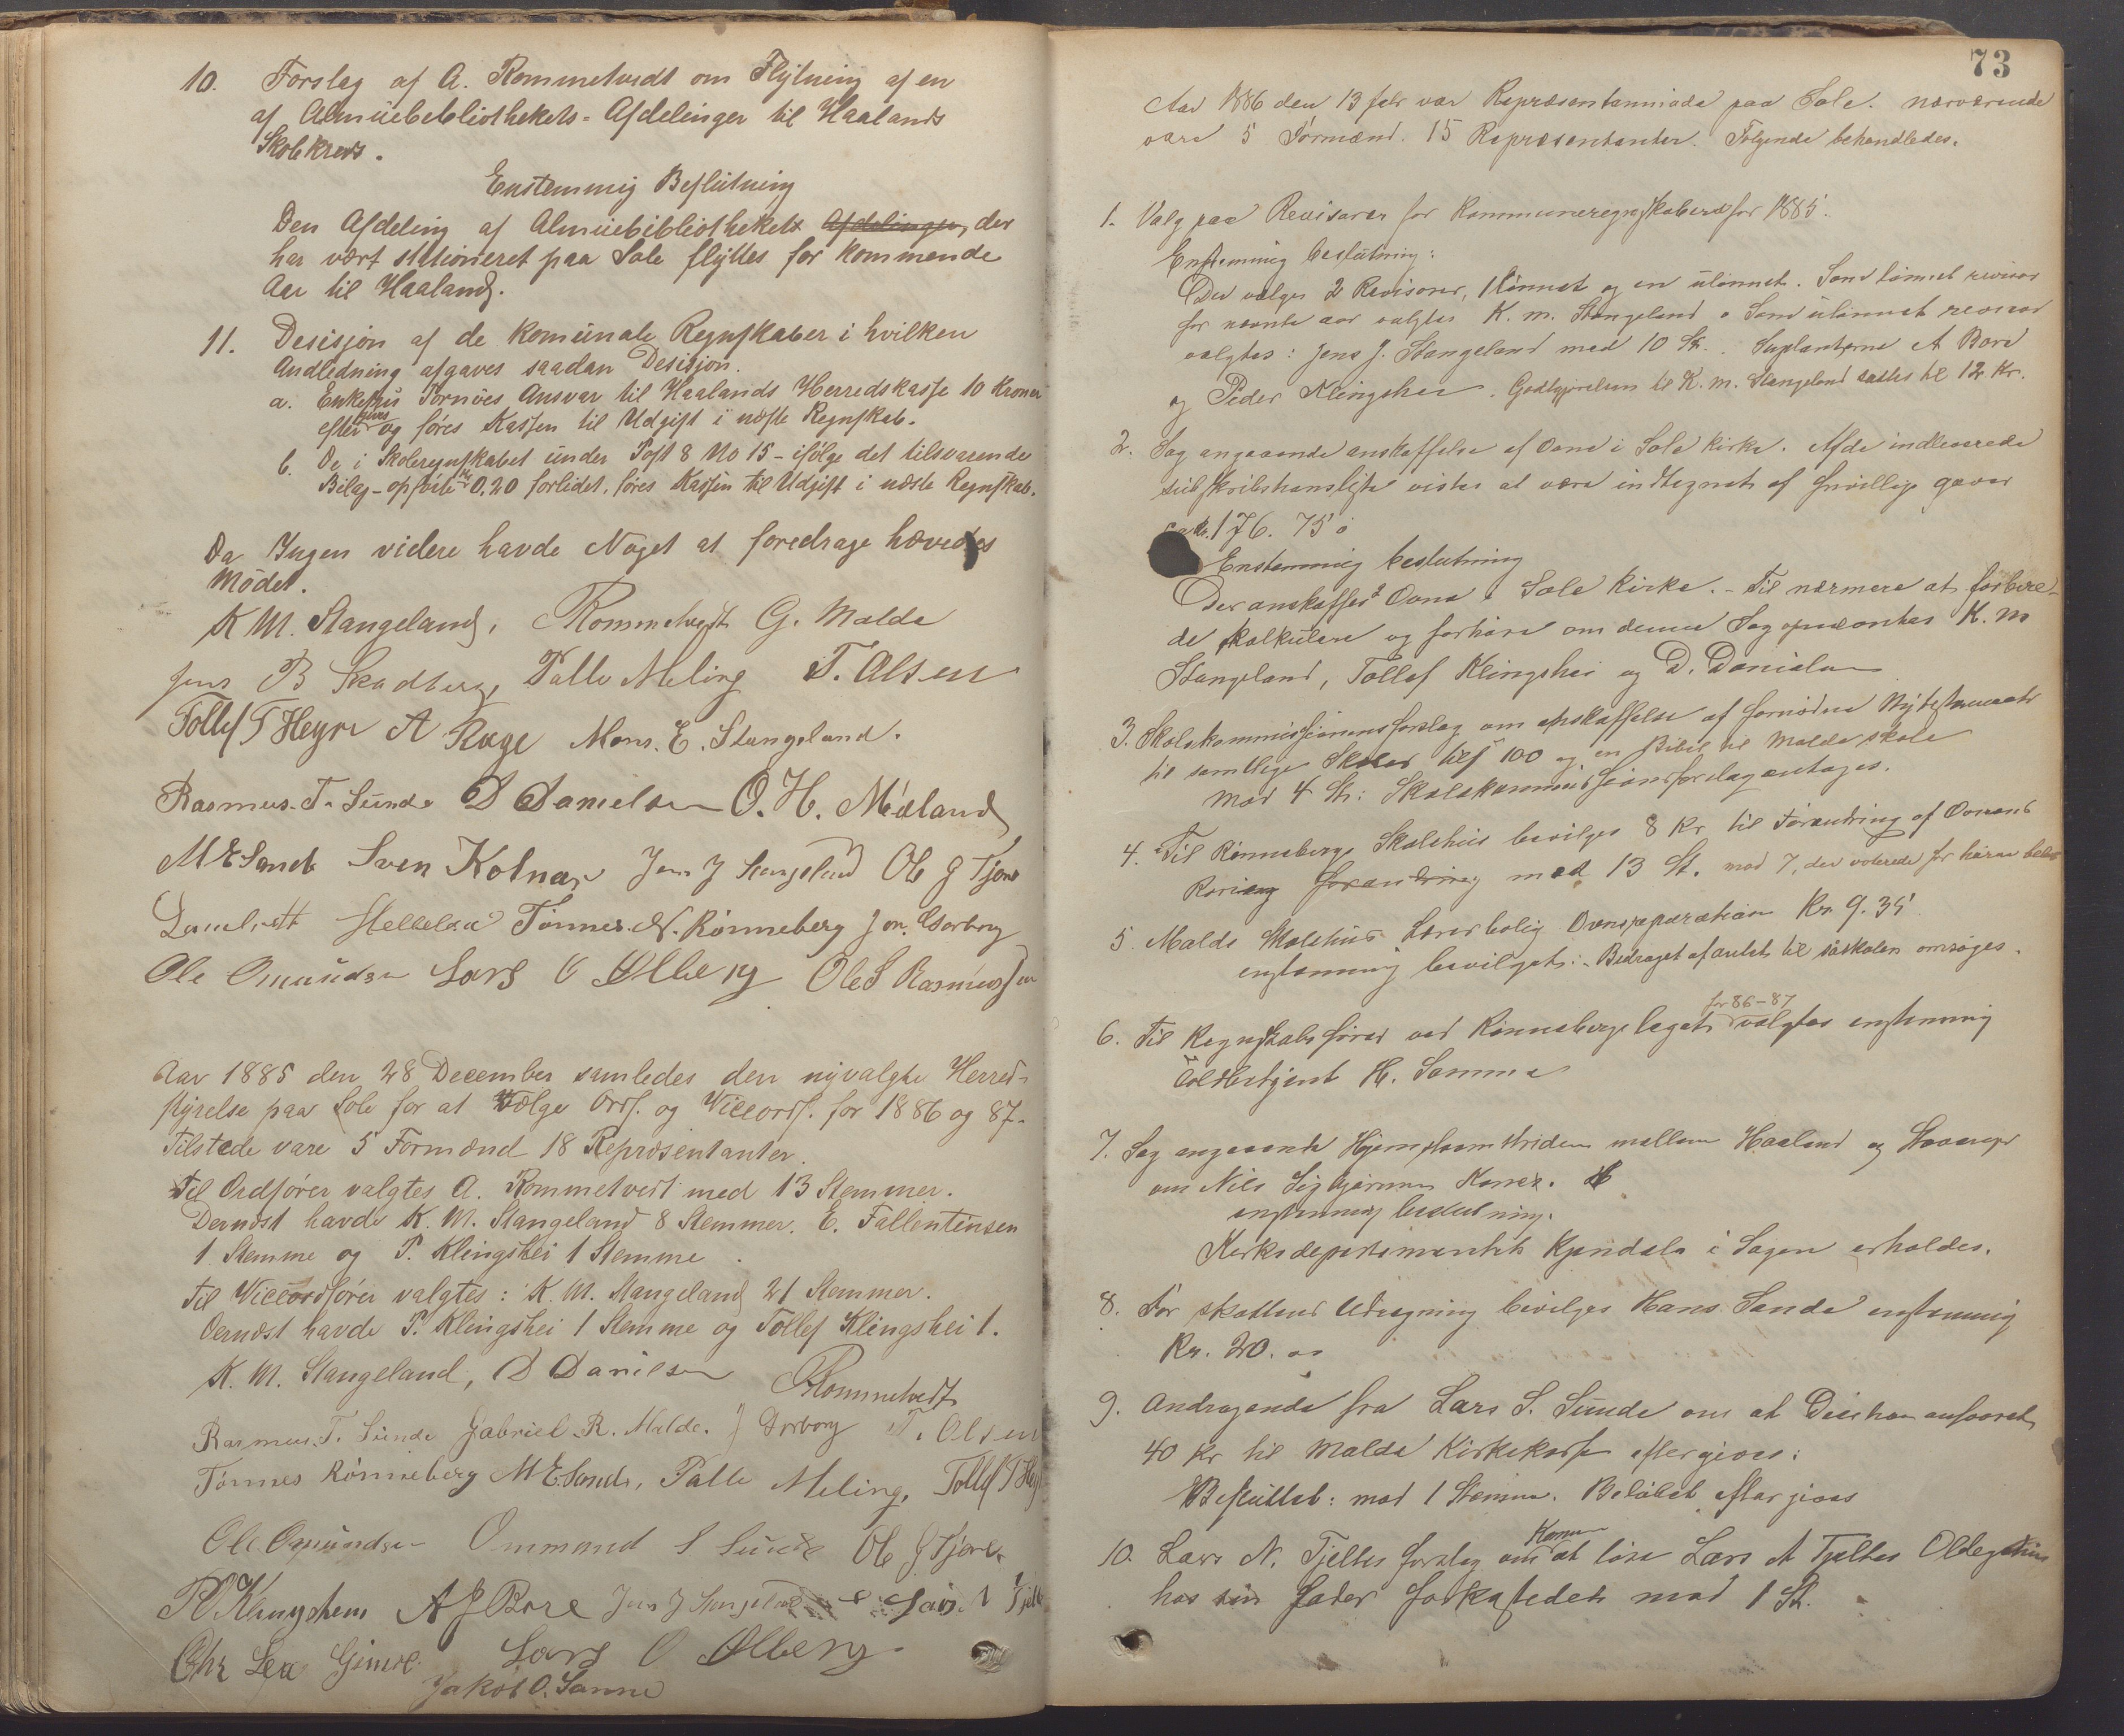 10. Forslag af A. Rommetvedt om Flytning af en
af Almuebebliothekets-Afdelinger til Haalands
Skolekreds.
Enstemmig Beslutning
Den Afdeling af Almuebibliotheket Afdelinger, der
har vært stationeret paa Sole flyttes for kommende
Aar til Haaland.
11. Desisjon af de komunale Regnskaber i hvilken
Andledning afgaves saadan Desisjon.
a. Tornöes Ansvar til Haalands Herredskasse 10 Kroner
og föres Kassen til Udgift i næste Regnskab.
b. De i Skoleregnskabet under Post 8 No 15 - ifölge det tilsvarende
Bilag - opförte Kr 0,20 forlidet, föres Kassen til Udgift i næste Regnskab.
Da Ingen videre havde Noget at foredrage hævedes
Mödet.
K M. Stangeland, Rommetvedt G. Malde
Jens B Skadberg, Palle Meling T. Olsen
Tollef T Heyre A Ræge Mons. E. Stangeland.
Rasmus. T. Sunde D Danielsen O. H. Mæland
M E Sande Sven Kolnes Jens J Stangeland Ole G Tjore
Tönnes. N. Rönneberg Jon. Dorborg
Ole Omundsen Lars O Ølberg Ole S Rasmussen
Aar 1885 den 28 December samledes den nyvalgte Herred-
styrelse paa Sole for at vælge Ordf. og Viceordf. for 1886 og 87.
Tilstede vare 5 Formænd 18 Repræsentanter.
Til Ordförer valgtes A. Rommetvedt med 13 Stemmer.
Dernæst havde K. M. Stangeland 8 Stemmer. E. Fallentinsen
1 Stemme og P. Klingshei 1 Stemme.
Til Viceordförer valgtes: K. M. Stangeland 21 Stemmer.
Dernæst havde P. Klingshei 1 Stemme og Tollef Klingshei 1.
K. M. Stangeland, D Danielsen Rommetvedt
Rasmus. T. Sunde Gabriel. R. Malde. J Dorborg T. Olsen
Tönnes Rönneberg M E. Sande, Palle Meling, Tollef T Hey
Ole Omundsen Ommund S Sunde Ole G Tjore.
P O Klingshem A J Bore Jens J Stangeland Lars N Tjelte
Chr Lea Gimre. Lars O Ølberg
Jakob O. Sanne
73
Aar 1886 den 13 febr var Repræsentanmöde paa Sole. nærværende
vare 5 Formænd. 15 Repræsentanter. Fölgende behandledes.
1. Valg paa Revisorer for kommuneregnskaberne for 1885.
Enstemmig beslutning:
Der vælges 2 Revisorer, 1 lönnet og en ulönnet. Som lönnet revisor
for nævnte aar valgtes K. m. Stangeland. Som ulönnet revisor
valgtes: Jens J. Stangeland med 10 St. Suplanterne A Bore
og Peder Klingshei. Godtgjörelsen til K. m. Stangeland sattes til 12 Kr.
2. Sag angaaende anskaffelse af Ovne i Sole kirke. Af de indleverede
subskribtionslister vistes at være indtegnet af frivillige gaver
Kr. 176. 75 ö
Enstemmig beslutning
Der anskaffes 2 Ovne i Sole kirke. - Til nærmere at forbere-
de kalkulere og forhöre om denne Sag opnævntes K. m
Stangeland, Tollef Klingshei og D. Danielsen
3. Skolekommissionens forslag om anskaffelse af fornödne Nytestamenter
til samtlige Skoler 100 og en Bibel til Malde skole
mod 4 St: Skolekommissionens forslag antages.
4. Til Rönneberg Skolehus bevilges 8 Kr. til Forandring af Ovnens
forandring med 13 St. mod 7, der voterede for
5. Malde Skolehus Lærerbolig Ovnsreparation Kr. 9.35
enstemmig bevilget.
6. Til Regnskabsförer ved Rönneberglegatet for 86-87 valgtes enstemmig
Toldbetjent H. Sömme
7. Sag angaaende Hjemstavnsstriden mellem Haaland og Stavanger
om Nils Sigbjörnsen
enstemmig beslutning.
Kirkedepartementets Kjendelse i Sagen erholdes.
8. For skattens Udregning bevilges Hans Sande enstemmig
Kr. 20. 00
9. Andragende fra Lars S. Sunde om at
40 kr til Malde Kirkekasse eftergives:
Besluttet: mod 1 Stemme. Belöbet eftergives
10. Lars N. Tjeltes forslag om Komm at löse Lars A Tjeltes
hos sin fader forkastedes mod 1 St.